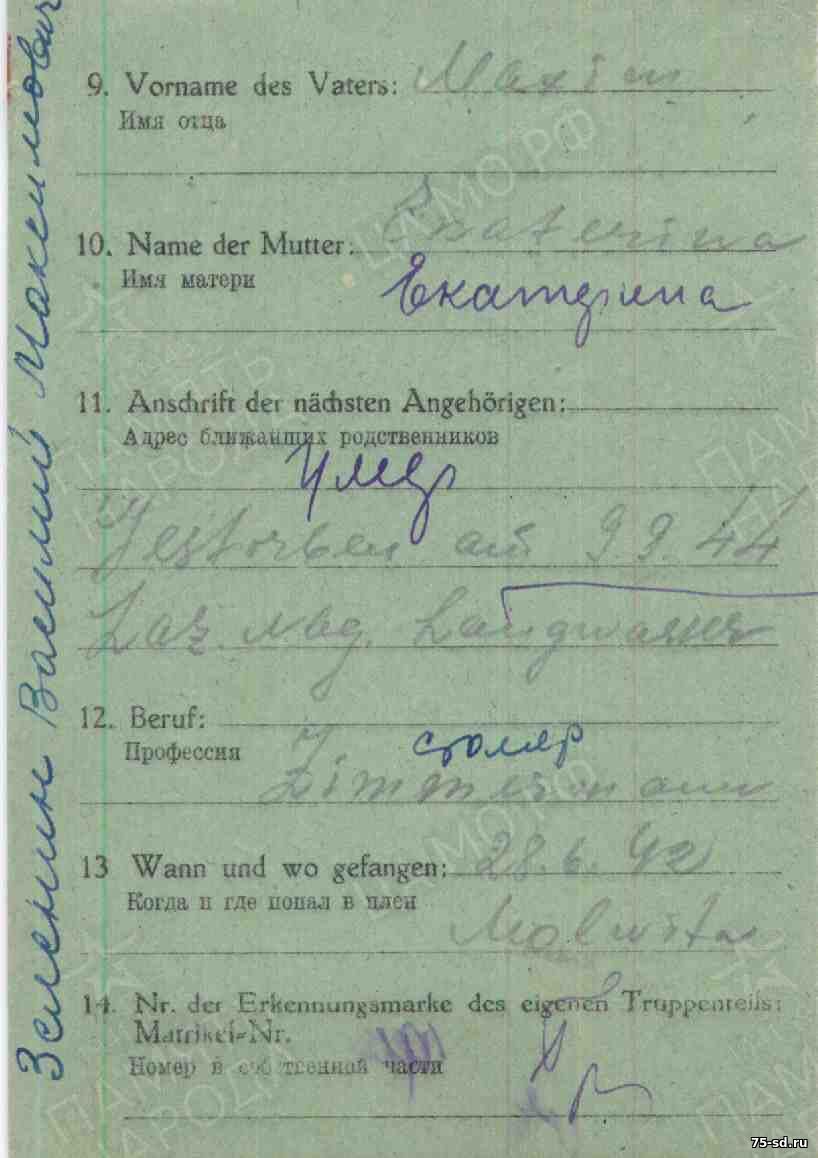 Зеленин Василий Максимович
9. Vorname des Vaters: Maxim
Имя отца
10. Name der Mutter: Ekaterina
Имя матери
Екатерина
11. Anschrift der nächsten Angehörigen:
Адрес ближайших родственников
Умер
Gestorben am 9.9.44
Laz. Langwasser
12. Beruf:
Профессия
столяр
Zimmermann
13 Wann und wo gefangen: 28.6.42
Когда и где попал в плен
14. Nr. der Erkennungsmarke des eigenen Truppenteils:
Matrikel-Nr.
Номер в собственной части
ЦАМО РФ
ПАМЯТЬ
НАРОДА
75-sd.ru